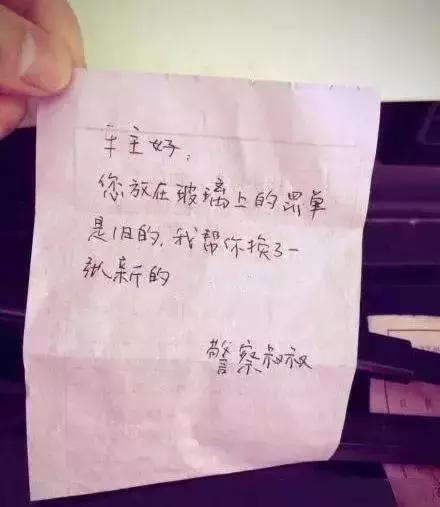 车主好,
您放在玻璃上的票单
是旧的,我帮你换了一
张新的
警察叔叔